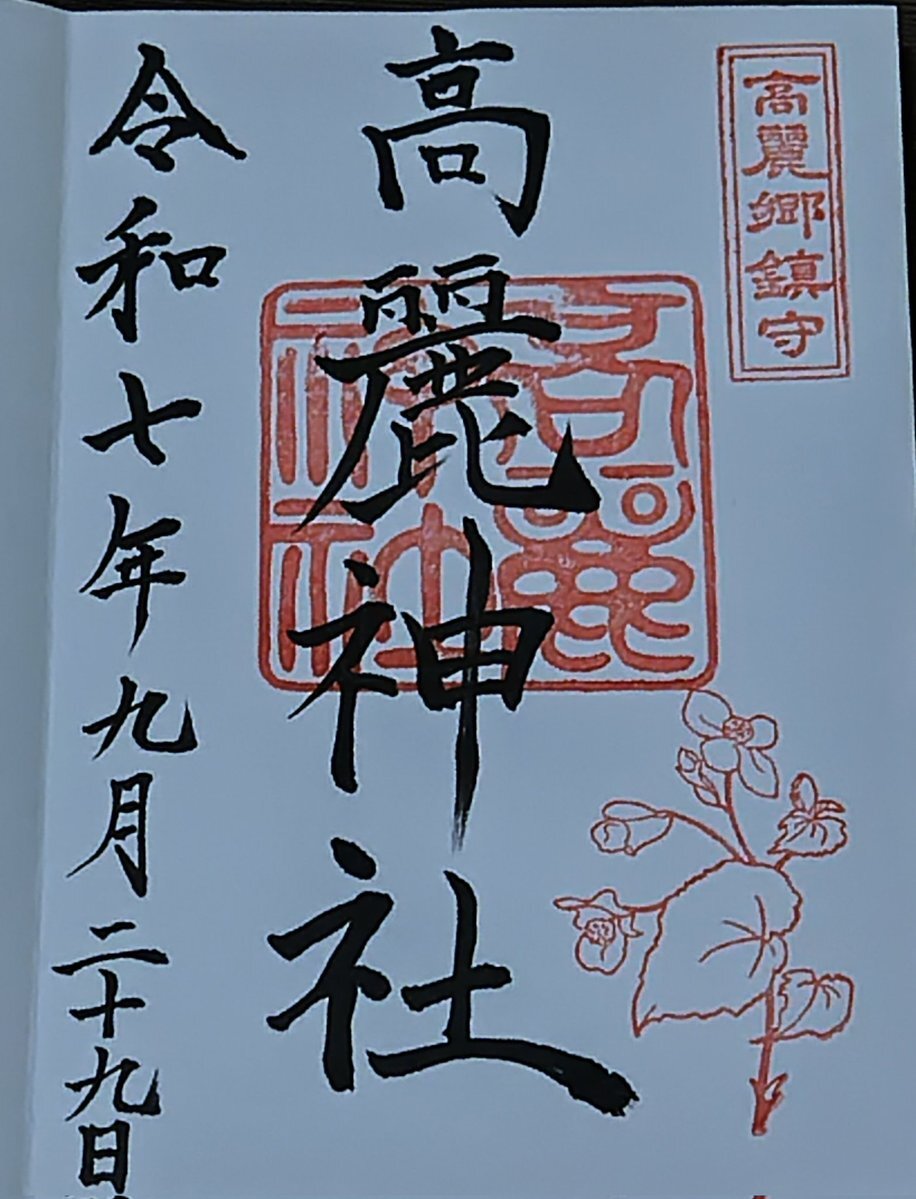 高麗郷鎮守
高麗神社
高麗神社
令和七年九月二十九日